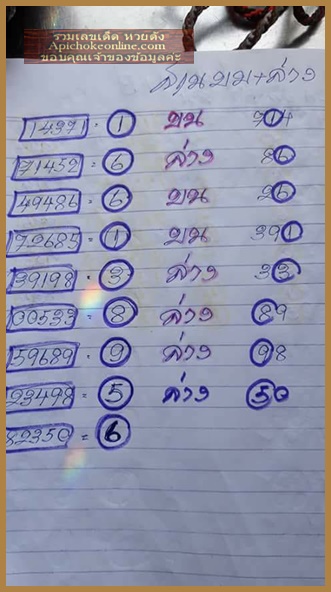 รวมเลขเด็ด หวยดัง
Apichokeonline.com
ขอบคุณเจ้าของข้อมูลค่ะ
บน+ล่าง
14391 = 1 บน 714
71452 = 6 ล่าง 86
49486 = 6 บน 26
72685 = 1 บน 391
39198 = 3 ล่าง 33
00533 = 8 ล่าง 89
59689 = 9 ล่าง 98
23498 = 5 ล่าง 50
82350 = 6